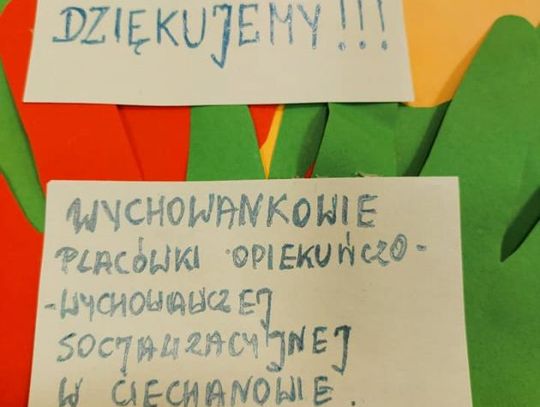 DZIĘKUJEMY!!!
WYCHOWANKOWIE
PLACÓWKI OPIEKUŃCZO-
-WYCHOWAWCZEJ
SOCJALIZACYJNEJ
W CIECHANOWIE.